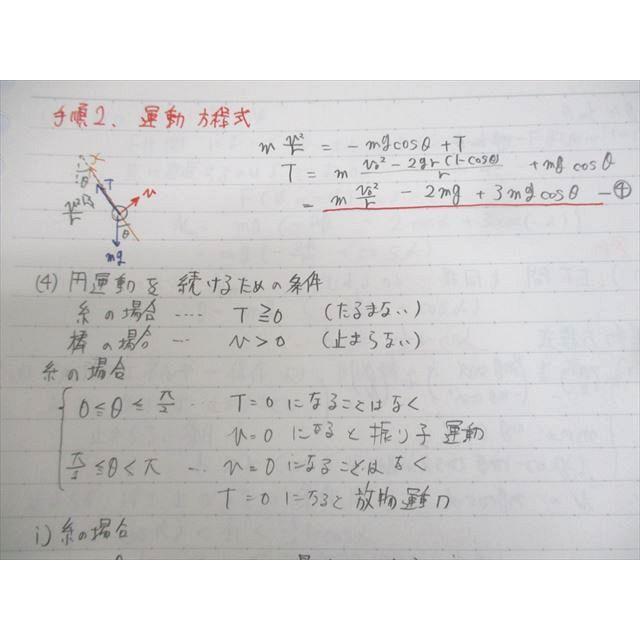 手順2. 運動方程式
m v²/r = -mg cosθ + T
T = m (v₀² - 2gr(1-cosθ))/r + mg cosθ
= m v₀²/r - 2mg + 3mg cosθ - ④
x
T
θ
v
θ
mg
(4) 円運動を続けるための条件
糸の場合 ‥‥ T ≧ 0 (たるまない)
棒の場合 ‥ v > 0 (止まらない)
糸の場合
0 ≦ θ ≦ π/2 ‥ T=0 になることはなく
v=0 になると振り子運動
π/2 ≦ θ < π ‥ v=0 になることはなく
T=0 になると放物運動
i) 糸の場合